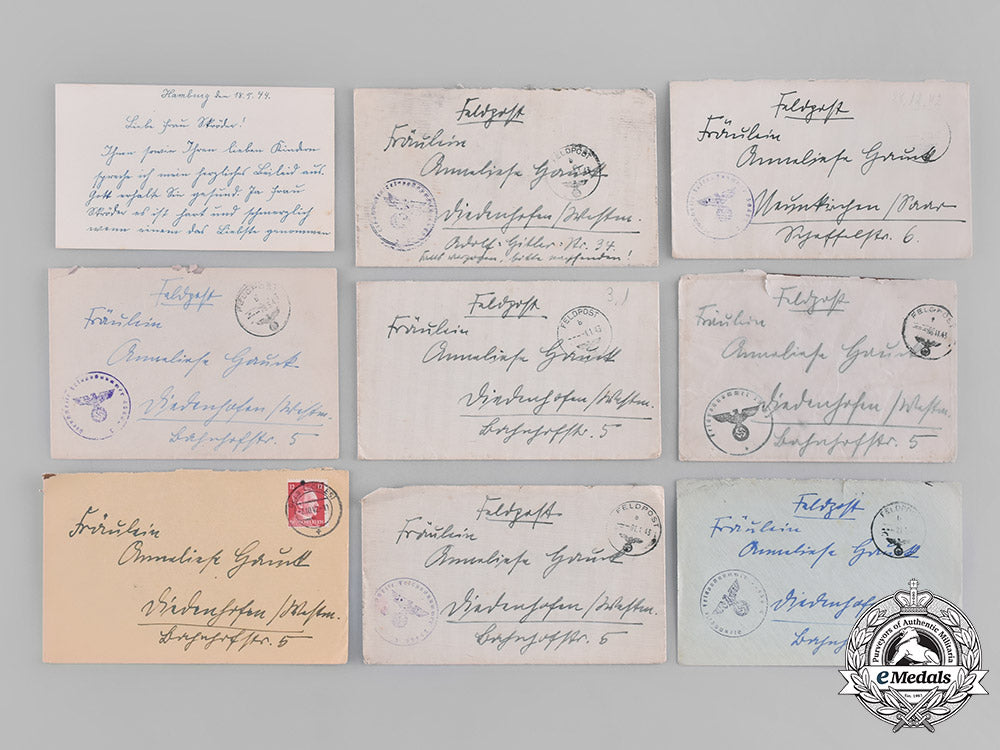 Hamburg den 18.5.44.
Liebe Frau Ströder!
Ihnen sowie Ihren lieben Kindern
spreche ich mein herzlichstes Beileid aus.
Gott erhalte Sie gesund. Ja Frau
Ströder es ist hart und schmerzlich
wenn einem das Liebste genommen
Feldpost
Fräulein
Anneliese Gauck
Diedenhofen/Westm.
Adolf-Hitler-Str. 34.
bitte nachsenden!
FELDPOST
b
Feldpost
Fräulein
Anneliese Gauck
Neunkirchen/Saar
Scheffelstr. 6.
Feldpost
Fräulein
Anneliese Gauck
Diedenhofen/Westm.
Bahnhofstr. 5
FELDPOST
b
Feldpost
3.1
Fräulein
Anneliese Gauck
Diedenhofen/Westm.
Bahnhofstr. 5
FELDPOST
b
Feldpost
Fräulein
Anneliese Gauck
Diedenhofen/Westm.
Bahnhofstr. 5
FELDPOST
Fräulein
Anneliese Gauck
Diedenhofen/Westm.
Bahnhofstr. 5
Feldpost
Fräulein
Anneliese Gauck
Diedenhofen/Westm.
Bahnhofstr. 5
FELDPOST
b
Feldpost
Fräulein
Anneliese Gauck
FELDPOST
b
Purveyors of Authentic Militaria
eMedals